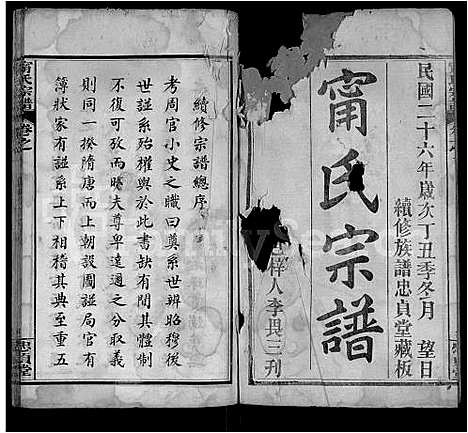 民國二十六年歲次丁丑季冬月 望日
續修族譜忠貞堂藏板
甯氏宗譜
梓人李畏三刊
甯氏宗譜
續修宗譜總序
考周官小史之職曰奠系世辨昭穆後
世譜系殆權輿於此書缺有間其體制
不復可攷而曉夫尊卑遠邇之分取義
則同一揆隋唐而上朝設圖譜局官有
簿狀家有譜系上下相稽其典至重五